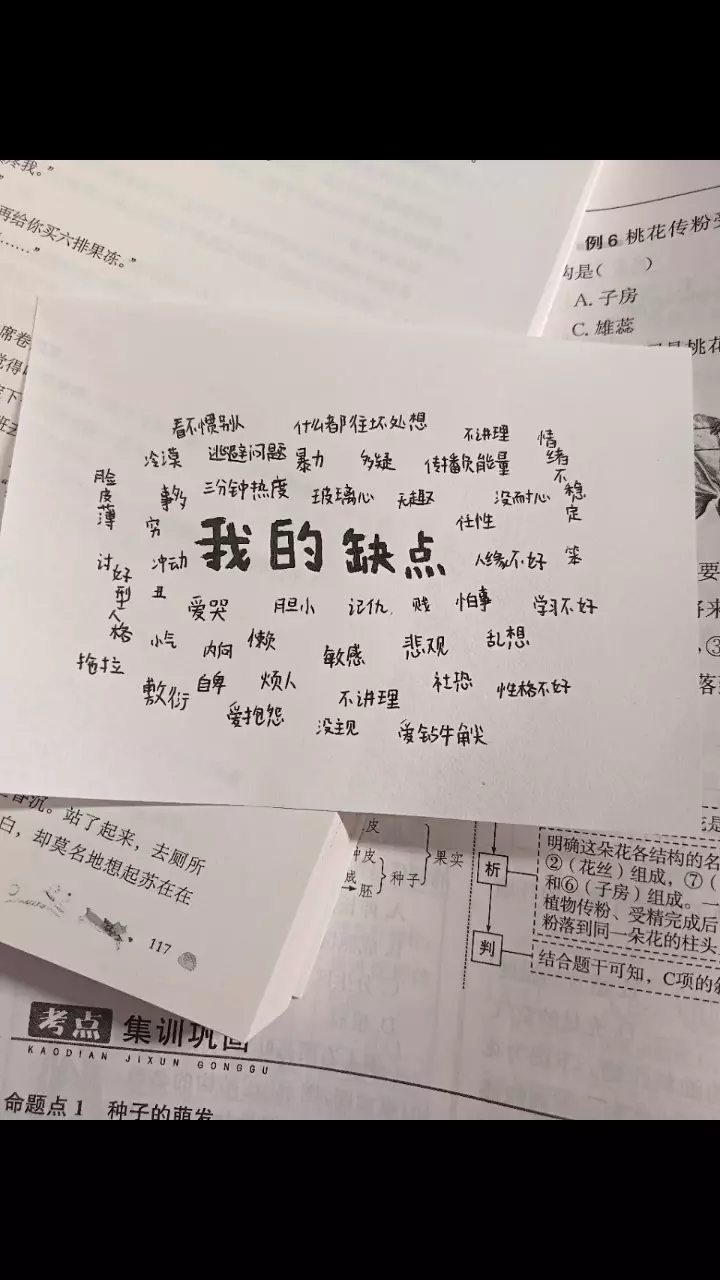 再给你买六排果冻。”
……”
例6 桃花传粉受
构是( )
A. 子房
C. 雄蕊
看不惯别人 什么都往坏处想 不讲理 情绪不稳定
冷漠 逃避问题 暴力 多疑 传播负能量
脸皮薄 事多 三分钟热度 玻璃心 无趣 没耐心
穷 我的缺点 任性
讨好型人格 冲动 人缘不好 笨
丑 爱哭 胆小 记仇 贱 怕事 学习不好
小气 内向 懒 敏感 悲观 乱想
拖拉 敷衍 自卑 烦人 不讲理 社恐 性格不好
爱抱怨 没主见 爱钻牛角尖
站了起来,去厕所
白,却莫名地想起苏在在
117
皮
种皮
胚
种子
果实
析
明确这朵花各结构的名
②(花丝)组成,⑦(
和⑥(子房)组成。一
植物传粉、受精完成后
粉落到同一朵花的柱头
判
结合题干可知,C项的叙
考点 集训巩固
KAODIAN JIXUN GONGGU
命题点1 种子的萌发